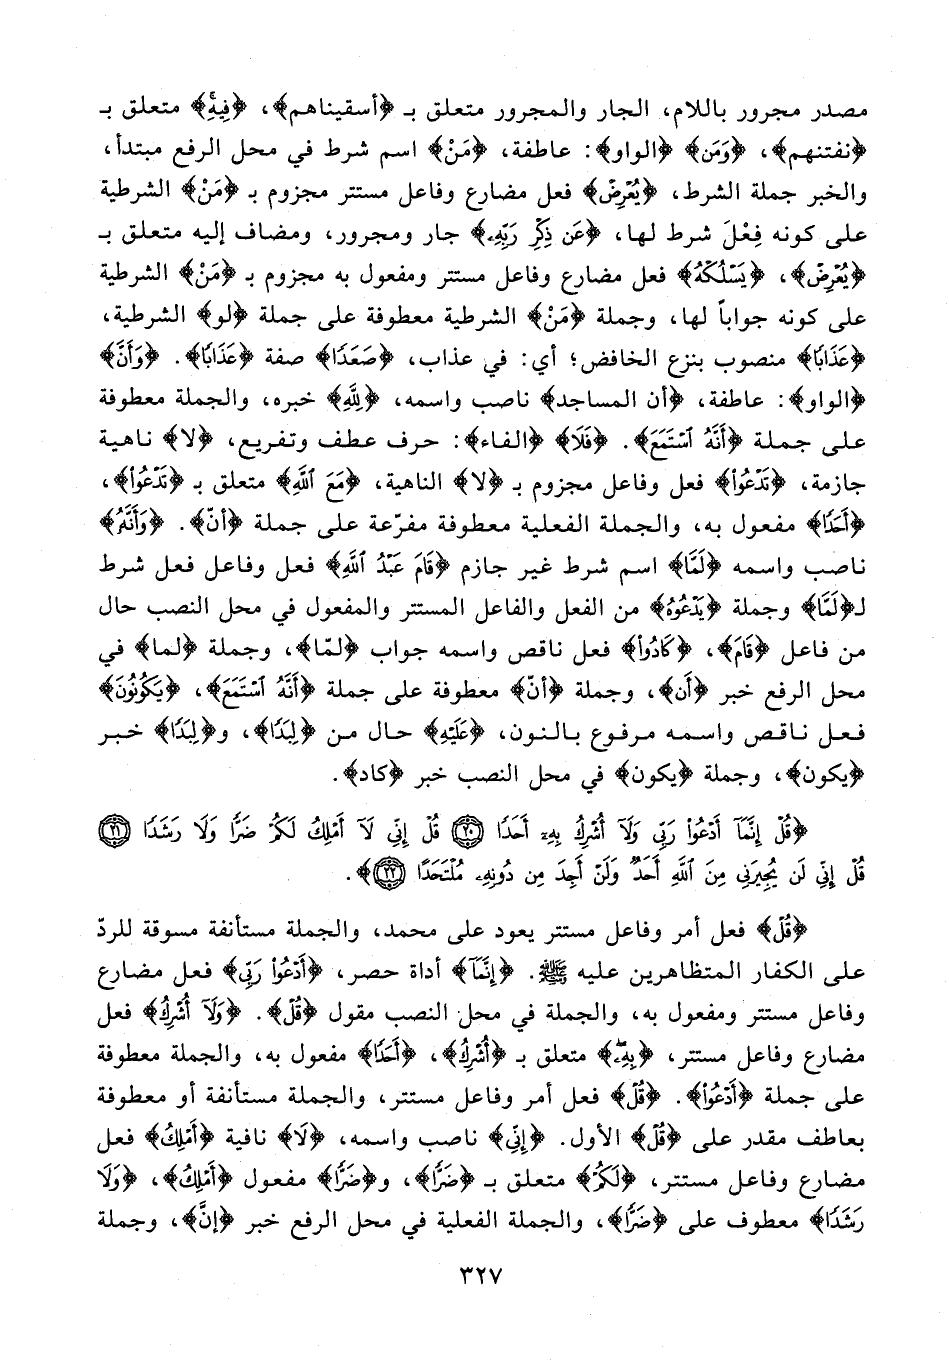 مصدر مجرور باللام، الجار والمجرور متعلق بـ ﴿أسقيناهم﴾، ﴿فِيهِ﴾ متعلق بـ
﴿نفتنهم﴾، ﴿وَمَن﴾ ﴿الواو﴾: عاطفة، ﴿مَنْ﴾ اسم شرط في محل الرفع مبتدأ،
والخبر جملة الشرط، ﴿يُعْرِضْ﴾ فعل مضارع وفاعل مستتر مجزوم بـ ﴿مَنْ﴾ الشرطية
على كونه فِعْلَ شرط لها، ﴿عَن ذِكْرِ رَبِّهِۦ﴾ جار ومجرور، ومضاف إليه متعلق بـ
﴿يُعْرِضْ﴾، ﴿يَسْلُكْهُ﴾ فعل مضارع وفاعل مستتر ومفعول به مجزوم بـ ﴿مَنْ﴾ الشرطية
على كونه جواباً لها، وجملة ﴿مَنْ﴾ الشرطية معطوفة على جملة ﴿لو﴾ الشرطية،
﴿عَذَابًا﴾ منصوب بنزع الخافض؛ أي: في عذاب، ﴿صَعَدًا﴾ صفة ﴿عَذَابًا﴾. ﴿وَأَنَّ﴾
﴿الواو﴾: عاطفة، ﴿أن المساجد﴾ ناصب واسمه، ﴿لِلَّهِ﴾ خبره، والجملة معطوفة
على جملة ﴿أَنَّهُ ٱسْتَمَعَ﴾. ﴿فَلَا﴾ ﴿الفاء﴾: حرف عطف وتفريع، ﴿لا﴾ ناهية
جازمة، ﴿تَدْعُوا۟﴾ فعل وفاعل مجزوم بـ ﴿لا﴾ الناهية، ﴿مَعَ ٱللَّهِ﴾ متعلق بـ ﴿تَدْعُوا۟﴾،
﴿أَحَدًا﴾ مفعول به، والجملة الفعلية معطوفة مفرّعة على جملة ﴿أنّ﴾. ﴿وَأَنَّهُۥ﴾
ناصب واسمه ﴿لَمَّا﴾ اسم شرط غير جازم ﴿قَامَ عَبْدُ ٱللَّهِ﴾ فعل وفاعل فعل شرط
لـ﴿لَمَّا﴾ وجملة ﴿يَدْعُوهُ﴾ من الفعل والفاعل المستتر والمفعول في محل النصب حال
من فاعل ﴿قَامَ﴾، ﴿كَادُوا۟﴾ فعل ناقص واسمه جواب ﴿لمّا﴾، وجملة ﴿لما﴾ في
محل الرفع خبر ﴿أن﴾، وجملة ﴿أنّ﴾ معطوفة على جملة ﴿أَنَّهُ ٱسْتَمَعَ﴾، ﴿يَكُونُونَ﴾
فعل ناقص واسمه مرفوع بالنون، ﴿عَلَيْهِ﴾ حال من ﴿لِبَدًا﴾، و﴿لِبَدًا﴾ خبر
﴿يكون﴾، وجملة ﴿يكون﴾ في محل النصب خبر ﴿كاد﴾.
﴿قُلْ إِنَّمَآ أَدْعُوا۟ رَبِّى وَلَآ أُشْرِكُ بِهِۦٓ أَحَدًا ٢٠ قُلْ إِنِّى لَآ أَمْلِكُ لَكُمْ ضَرًّا وَلَا رَشَدًا ٢١
قُلْ إِنِّى لَن يُجِيرَنِى مِنَ ٱللَّهِ أَحَدٌ وَلَنْ أَجِدَ مِن دُونِهِۦ مُلْتَحَدًا ٢٢﴾.
﴿قُلْ﴾ فعل أمر وفاعل مستتر يعود على محمد، والجملة مستأنفة مسوقة للردّ
على الكفار المتظاهرين عليه ﷺ. ﴿إِنَّمَآ﴾ أداة حصر، ﴿أَدْعُوا۟ رَبِّى﴾ فعل مضارع
وفاعل مستتر ومفعول به، والجملة في محل النصب مقول ﴿قُلْ﴾. ﴿وَلَآ أُشْرِكُ﴾ فعل
مضارع وفاعل مستتر، ﴿بِهِۦٓ﴾ متعلق بـ ﴿أُشْرِكُ﴾، ﴿أَحَدًا﴾ مفعول به، والجملة معطوفة
على جملة ﴿أَدْعُوا۟﴾. ﴿قُلْ﴾ فعل أمر وفاعل مستتر، والجملة مستأنفة أو معطوفة
بعاطف مقدر على ﴿قُلْ﴾ الأول. ﴿إِنِّى﴾ ناصب واسمه، ﴿لَا﴾ نافية ﴿أَمْلِكُ﴾ فعل
مضارع وفاعل مستتر، ﴿لَكُمْ﴾ متعلق بـ ﴿ضَرًّا﴾، و﴿ضَرًّا﴾ مفعول ﴿أَمْلِكُ﴾، ﴿وَلَا
رَشَدًا﴾ معطوف على ﴿ضَرًّا﴾، والجملة الفعلية في محل الرفع خبر ﴿إنَّ﴾، وجملة
٣٢٧